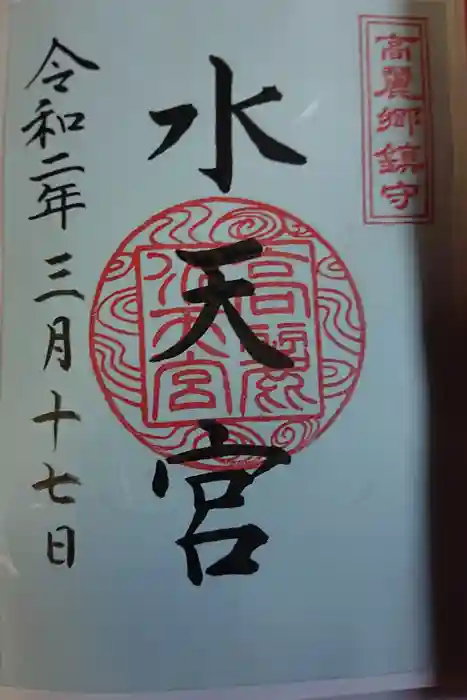 高麗郷鎮守
水天宮
高麗
水天宮
令和二年三月十七日